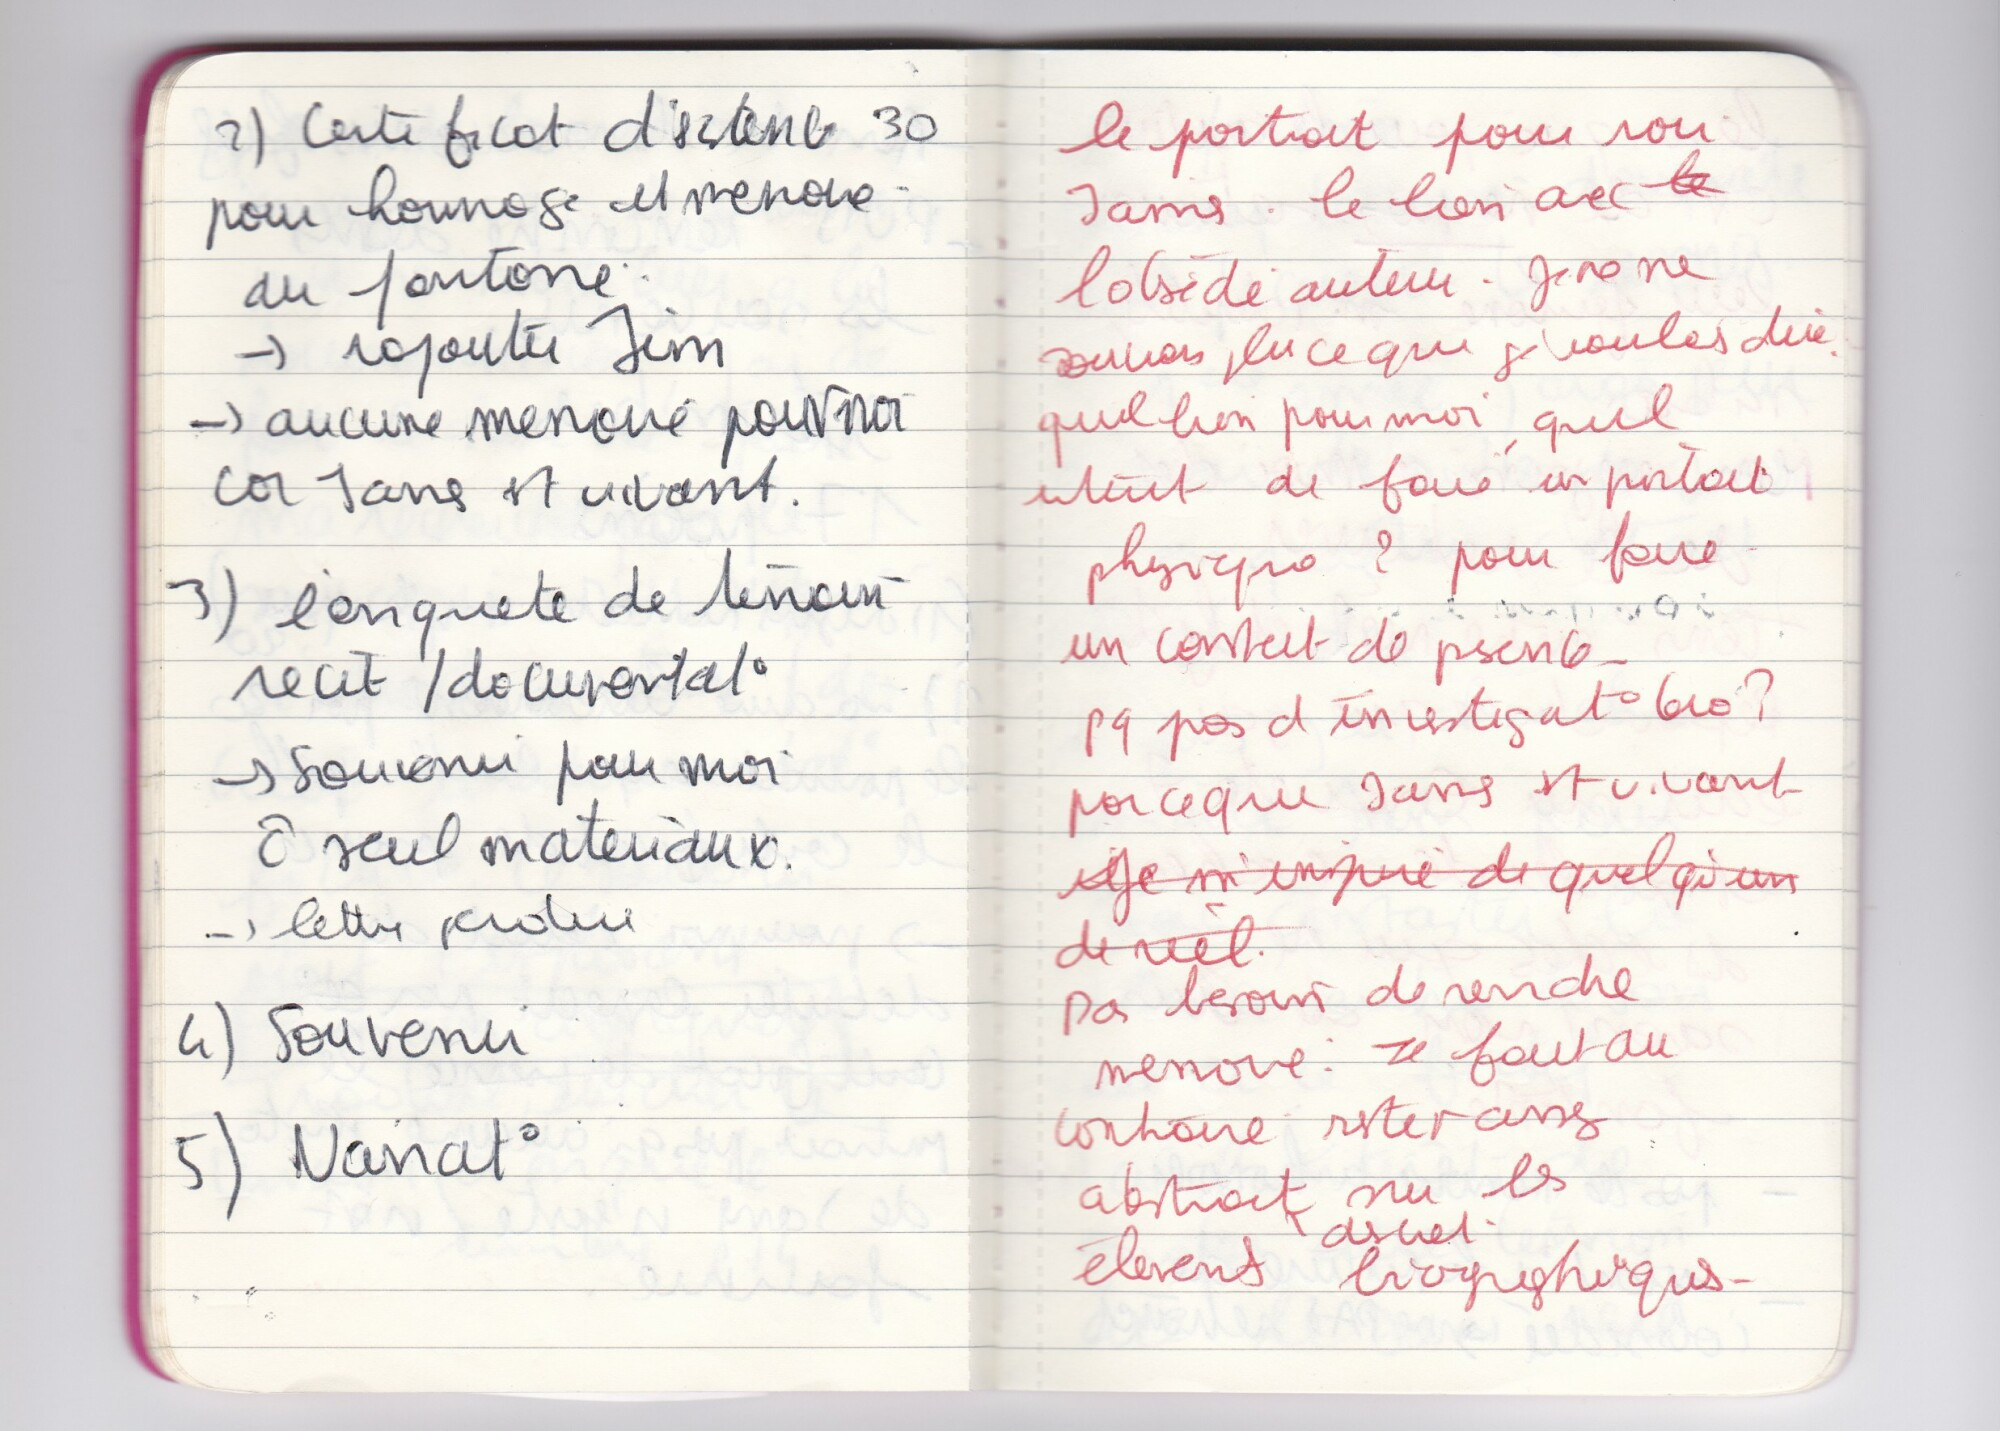 2) Certificat d'existence 30
pour hommage et memoire
du fantome.
→ rajouter Jim
→ aucune memoire pour moi
car James est vivant.
3) l'enquete de temoin
recit / documentat°
→ souvenir pour moi
ô seul materiaux.
→ lettre perdue
4) Souvenir
5) Narrat°
le portrait pour
James. le lien avec le
l'obsédé auteur. Je ne me
souviens plus ce que je voulais dire.
quel lien pour moi, quel
interet de faire un portrait
physique ? pour faire
un contrat de presence
pq pas d'investigat° bio?
parce que James est vivant
Je m'inspire de quelqu'un
de réel.
pas besoin de rendre
memoire. Il faut au
contraire rester assez
abstrait sur les
élements biographiques